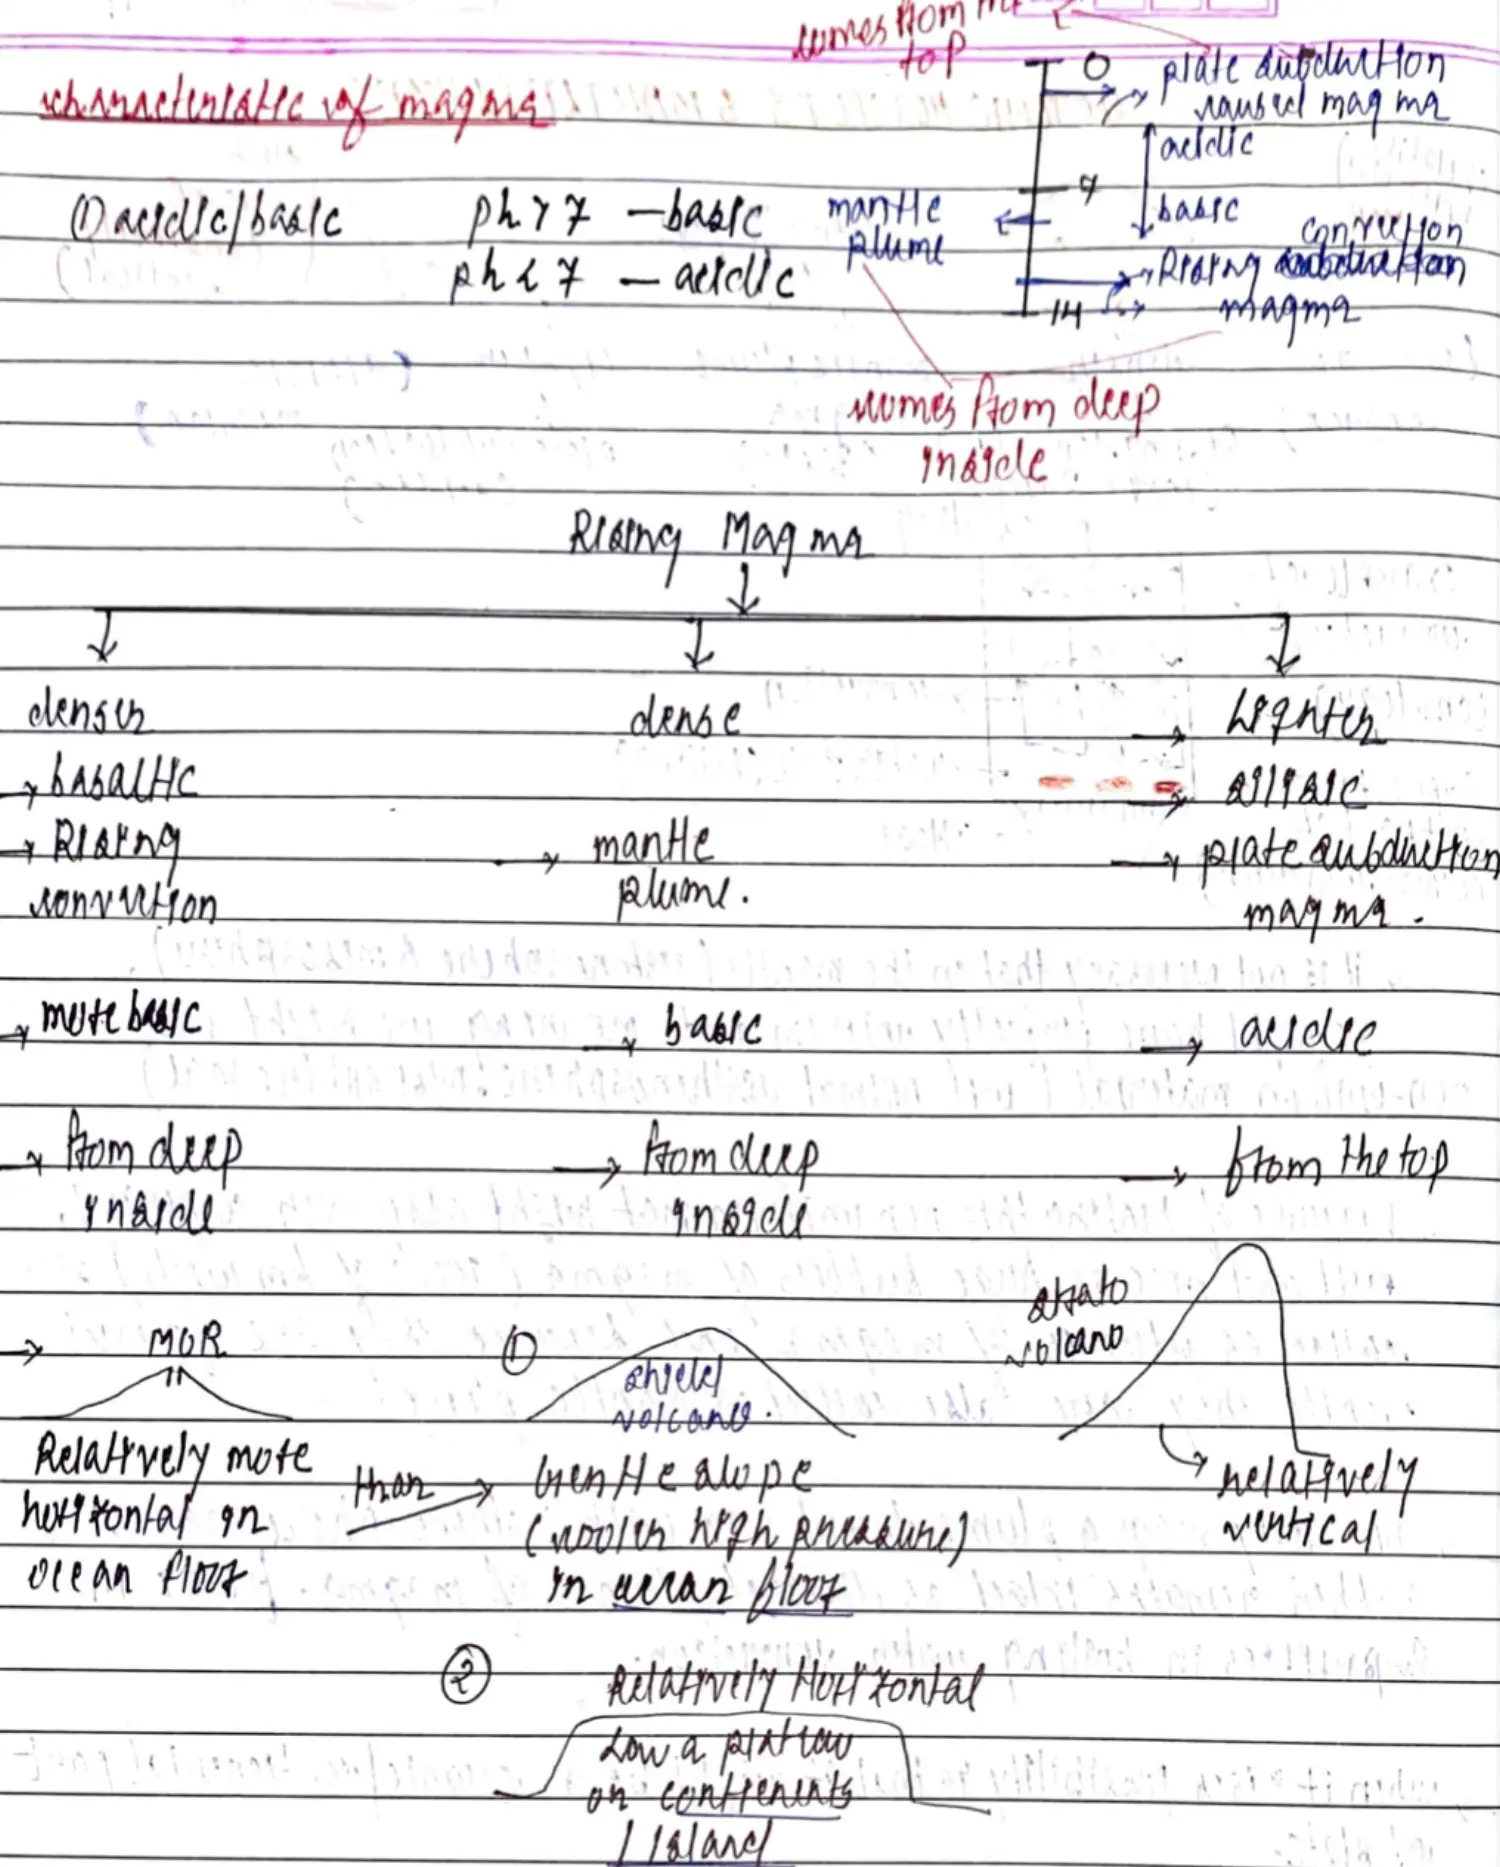 comes from
top
characteristic of magma
0
plate subduction
caused magma
acidic
7
basic
① acidic/basic
ph > 7 - basic
ph < 7 - acidic
mantle
plume
convection
Rising
magma
14
comes from deep
inside
Rising Magma
denser
dense
Lighter
→ basaltic
→ silisic
→ Rising
convection
→ mantle
plume.
→ plate subduction
magma.
→ more basic
→ basic
→ acidic
→ from deep
inside
→ from deep
inside
→ from the top
→ MOR
①
shield
volcano.
strato
volcano
Relatively more
horizontal in
ocean floor
than
Gentle slope
(cooler high pressure)
in ocean floor
relatively
vertical
②
Relatively Horizontal
on continents
/ Island